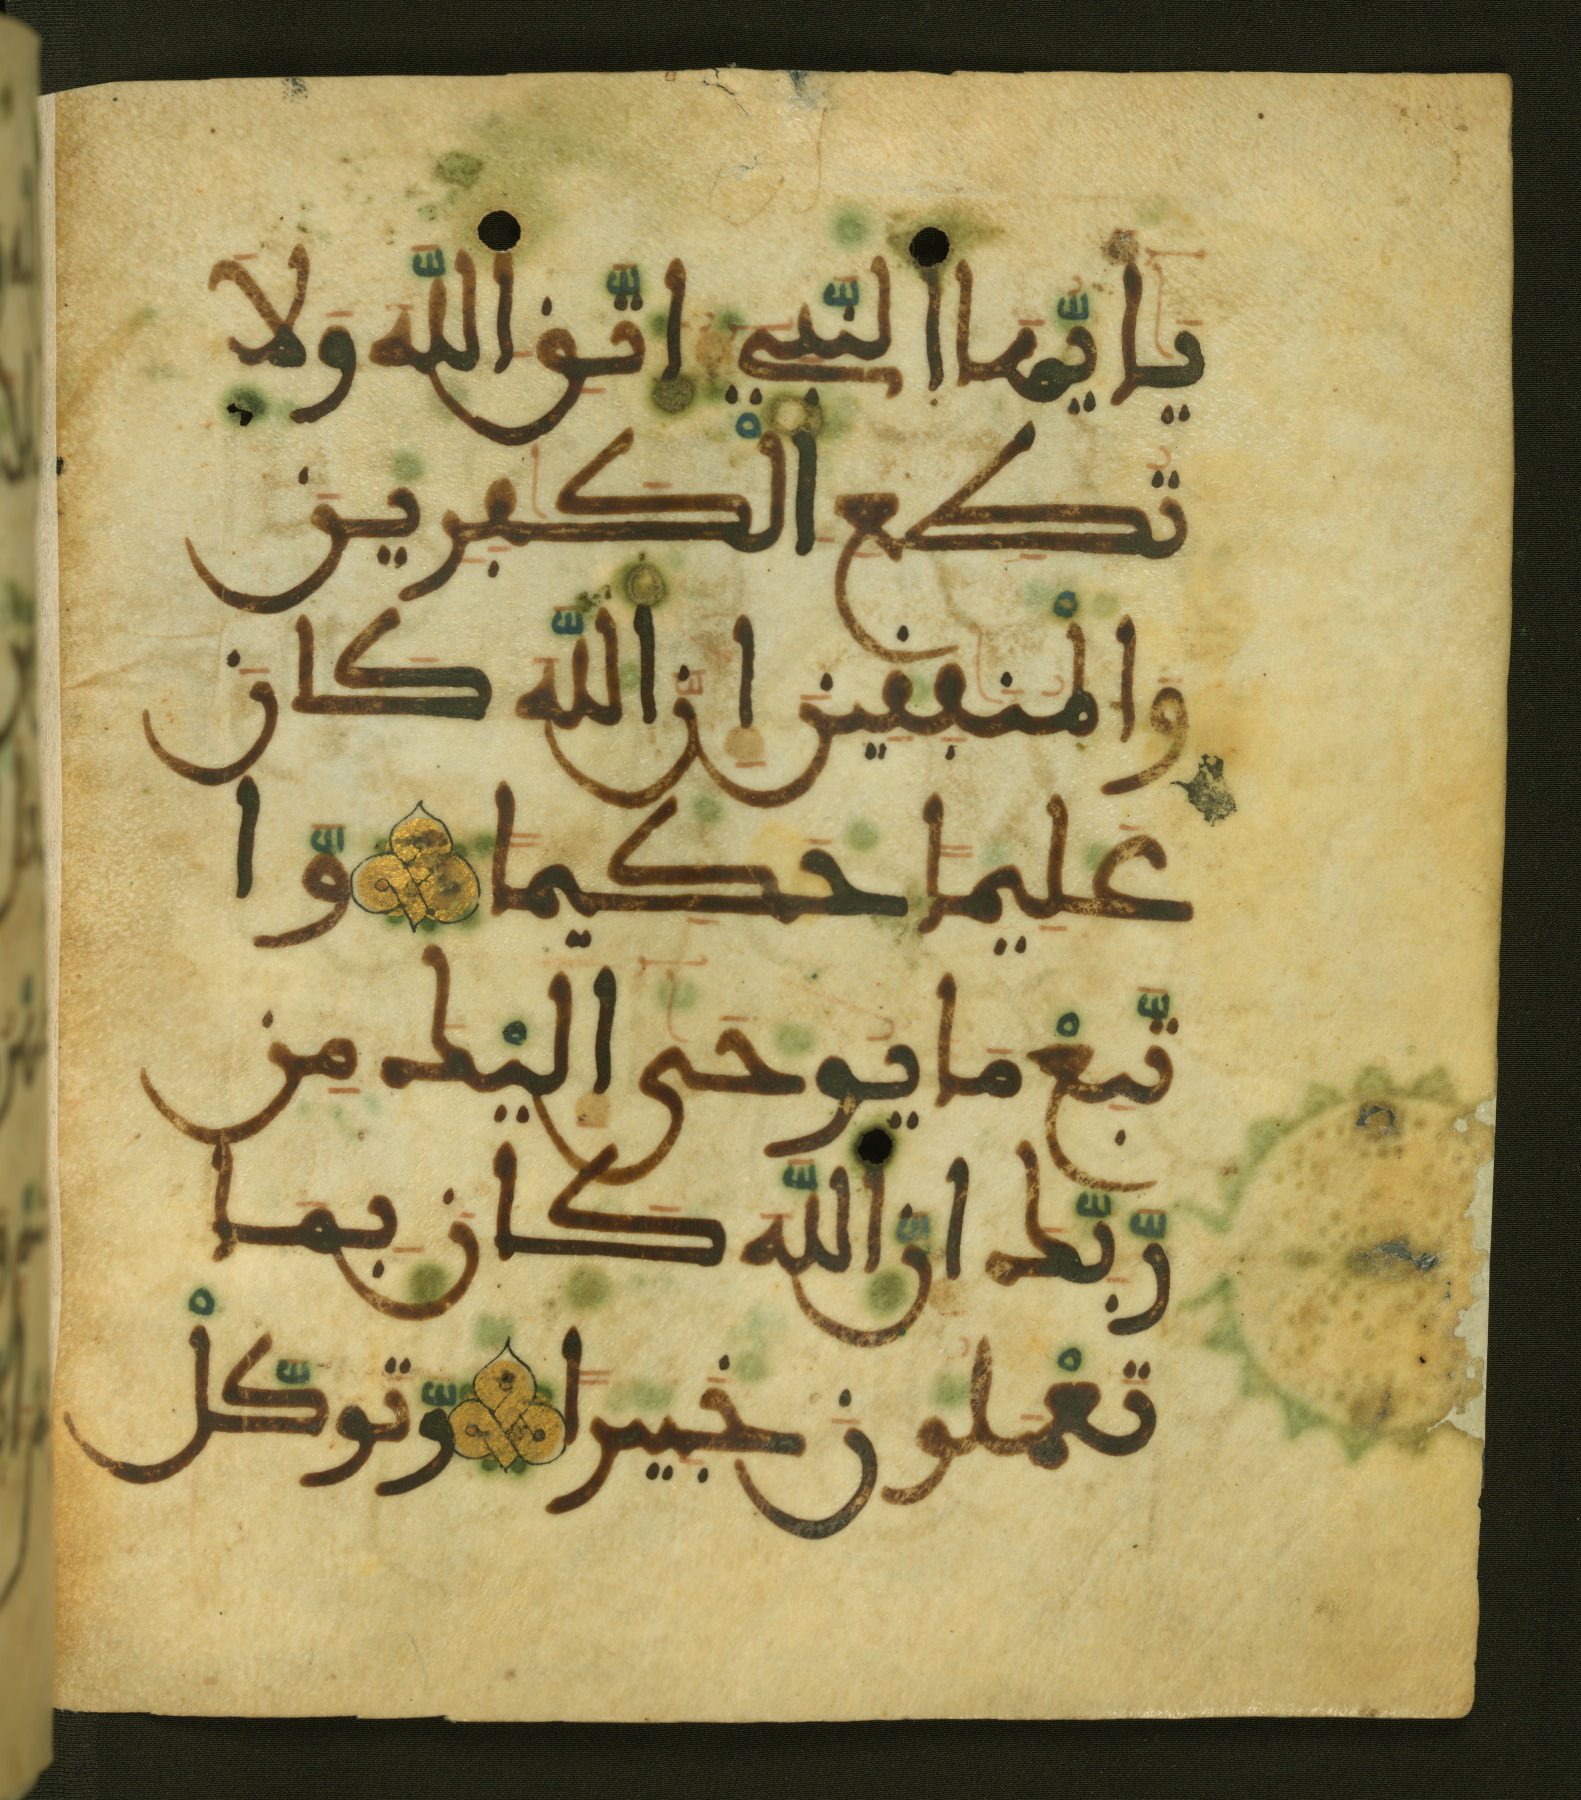 يأيها النبي اتق الله ولا
تطع الكفرين
والمنفقين ان الله كان
عليما حكيما وا
تبع ما يوحى اليك من
ربك ان الله كان بما
تعملون خبيرا وتوكل